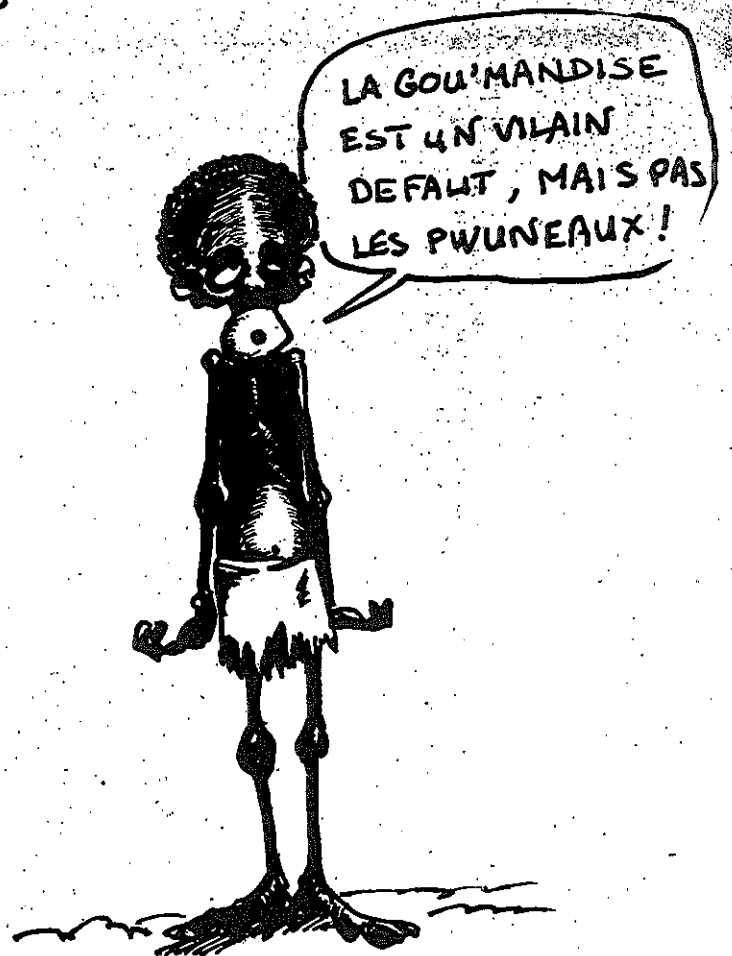 LA GOU'MANDISE
EST UN VILAIN
DEFAUT, MAIS PAS
LES PWUNEAUX!